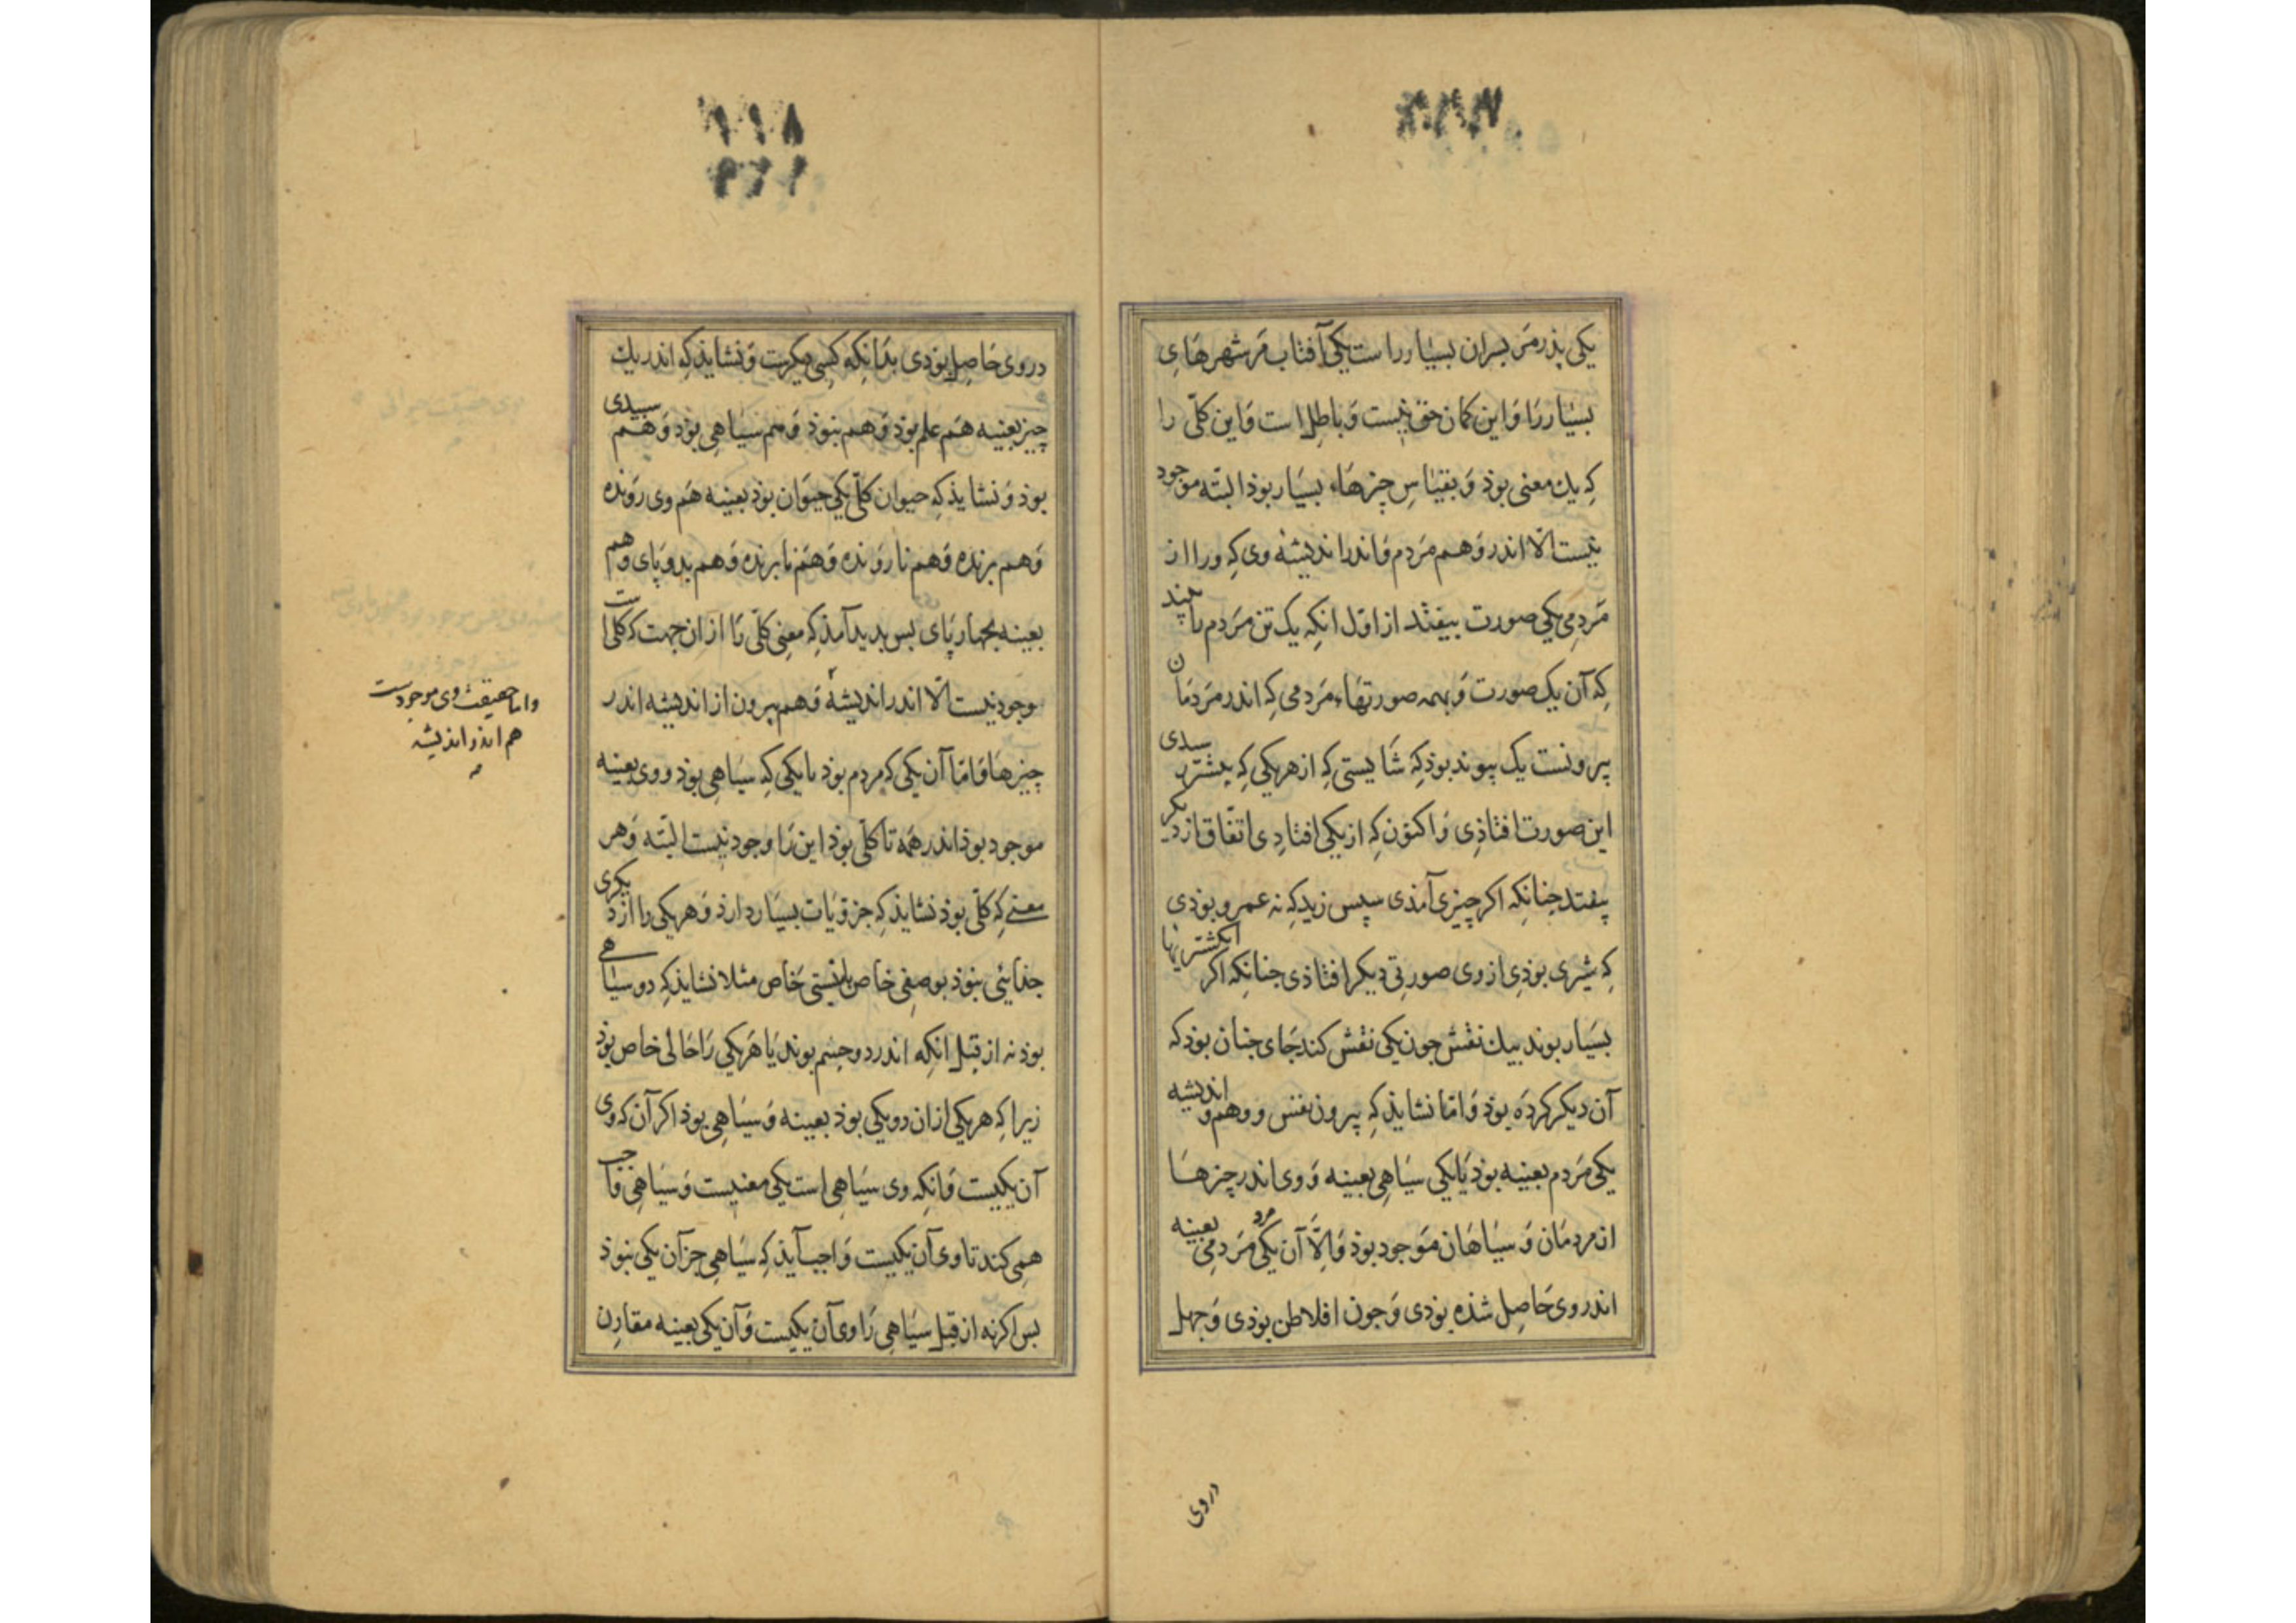 یکی پذر مَر پسران بسیار را است یکی آفتاب مَر شهرهَایِ
بسیار رَا وَ این کمان حق نیست وَ باطِل است وَ این کلّی را
کِه یك معنی بوذ وَ بقیَاسِ چزهَاء بسیَار بوذ البتّه موجود
نیست الّا اندر وَهم مَردم وَ اندر اندیشهٔ وی کِه ورا از
مَردمِی یکی صورت بیفتد از اوّل انکِه یک تن مَردم را بیند
کِه آن یک صورت وَ بهمه صورتهَاء مَردمی کِه اندر مَردمَان
پیرونست یک پیوند بوذ کِه شَایستی کِه از هر یکی کِه پیشتر رسیدی
این صورت افتاذِی وَ اکنوَن کِه از یکی افتادِی اتفّاق از دیگر
بیفتد چنانکِه اکر چیزی آمذی سپس زید کِه نه عمرو بوذی
کِه شیری بوذِی از وی صورتی دیکر افتاذی چنانکِه اکر انکشتریها
بسیَار بوند بیك نقش چون یکی نقش کند جَای چنان بوذ که
آن دیکر کردَه بوذ وَ امّا نشایذ کِه پیرون نفس و وهم و اندیشه
یکی مَردم بعینِه بوذ یَا یکی سیَاهِی بعینِه وَ وی اندر چزهَا
از مردمَان وَ سیَاهَان مَوجود بوذ وَ اِلَّا آن یکی مَردمِی بعینه
مرد
اندر وی حَاصِل شذه بوَدی وَ چون افلاطن بوذی وَ جهل
دروی
۱۱۸
در وی حَاصِل بوَذی بدَانکِه کسی دیکرست وَ نشایذ کِه اندر یك
چیز بعینِه هَم علم بوذ وَ هَم نبوذ وَ هم سیَاهِی بوَد وَ هَم سپیدی
بوذ وَ نشایذ کِه حیوان کلّی یکی حیَوان بوَد بعینِه هَم وی رَونده
وَ هم پرنده وَ هم نارَونده وَ هَم ناپرنده وَ هم بدو پَای و هم
بعینه بچهار پَای بس بدید آمذ کِه معنِی کلّی رَا از ان جهت که کلی است
وجود نیست الّا اندر اندیشهٔ وَ هم پیرون از اندیشه اندر
چیزهَا وَ امّا آن یکی که مردم بوَد یا یکی کِه سیَاهِی بوَد و وی بعینِه
موجود بوذ اندر همَه تا کلّی بوذ این رَا وجود نیست البتّه وَ هر
معنی کِه کلّی بوذ نشایذ کِه جزویَات بسیَار دارذ وَ هر یکی را از دیکری
جذایئی نبوَذ بوصفی خاص یا نسبتی خَاص مثلا نشایذ کِه دو سیَاهی
بوذ نه از قبَل انکِه اندر دو جسم بوند یَا هَر یکی رَا حَالی خاص بوَد
زیرا کِه هر یکی از ان دو یکی بوذ بعینِه وَ سیَاهِی بوذ اکر آن که وی
آن یکیست وَ انکه وی سیَاهِی است یکی معنیست وَ سیَاهِی واجب
همِی کند تا وی آن یکیست وَ اجب آیذ کِه سیَاهِی جز آن یکی نبوذ
بس اکر نه از قبَل سیَاهِی رَا وی آن یکیست وَ آن یکی بعینه مقارن
واما حقیقت وی موجودست
هم اندر اندیشه